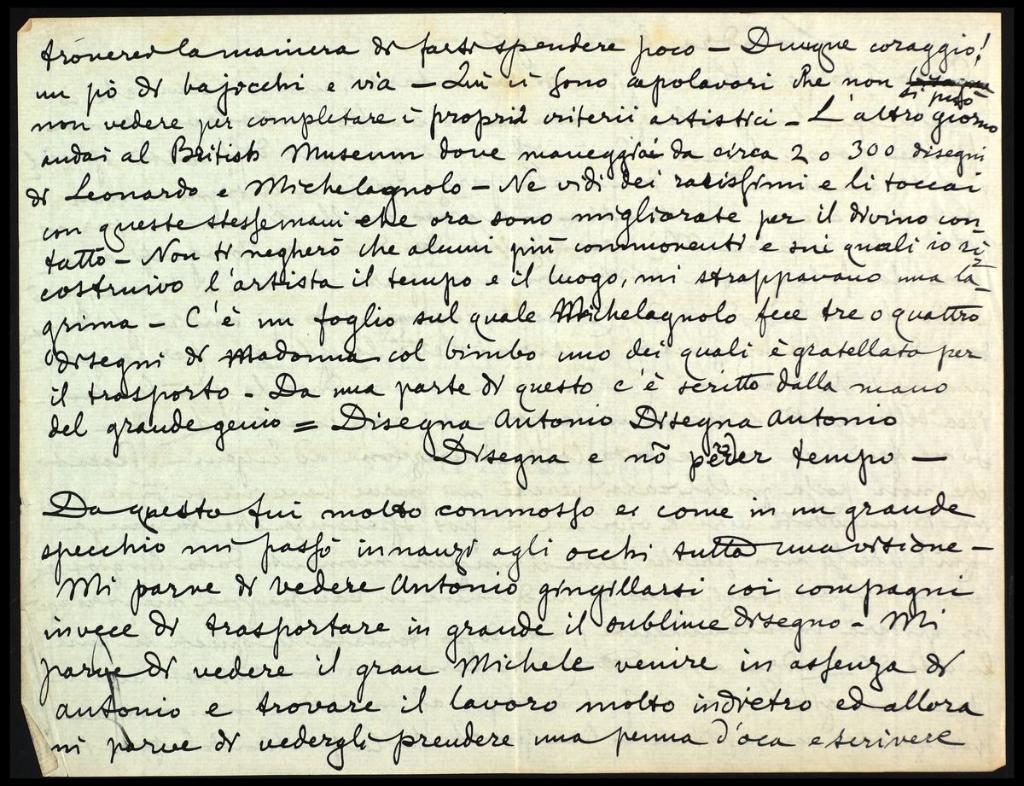 troverei la maniera di farti spendere poco – Dunque coraggio!
un pò di bajocchi e via – Qui ci sono capolavori che non si può
non vedere per completare i proprii criterii artistici – L'altro giorno
andai al British Museum dove maneggiai da circa 2 o 300 disegni
di Leonardo e Michelagnolo – Ne vidi dei rarissimi e li toccai
con queste stesse mani che ora sono migliorate per il divino con-
tatto – Non ti negherò che alcuni più commoventi e sui quali io ri-
costruivo l'artista il tempo e il luogo, mi strappavano una la-
grima – C'è un foglio sul quale Michelagnolo fece tre o quattro
disegni di Madonna col bimbo uno dei quali è gratellato per
il trasporto – Da una parte di questo c'è scritto dalla mano
del grande genio = Disegna Antonio Disegna Antonio
Disegna e nō perder tempo –
Da questo fui molto commosso e come in un grande
specchio mi passò innanzi agli occhi tutta una visione –
Mi parve di vedere Antonio gingillarsi coi compagni
invece di trasportare in grande il sublime disegno – Mi
parve di vedere il gran Michele venire in assenza di
Antonio e trovare il lavoro molto indietro ed allora
mi parve di vedergli prendere una penna d'oca e scrivere